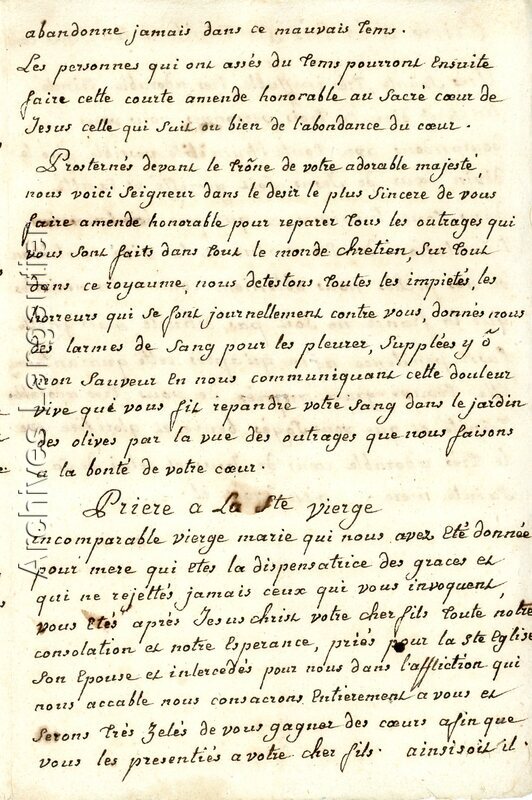 abandonne jamais dans ce mauvais tems.
Les personnes qui ont assés du tems pourront Ensuite
faire cette courte amende honorable au Sacré cœur de
Jesus celle qui Suit ou bien de l'abondance du cœur.
Prosternés devant le trône de votre adorable majesté,
nous voici Seigneur dans le desir le plus Sincere de vous
faire amende honorable pour reparer tous les outrages qui
vous Sont faits dans tout le monde chretien, Sur tout
dans ce royaume, nous detestons toutes les impietés, les
horreurs qui se font journellement contre vous, donnés nous
des larmes de Sang pour les pleurer, Supplées y ô
mon Sauveur En nous communiquant cette douleur
vive qui vous fit repandre votre Sang dans le jardin
des olives par la vue des outrages que nous faisons
a la bonté de votre cœur.
Priere a La Ste vierge
incomparable vierge marie qui nous avez Eté donnée
pour mere qui Etes la dispensatrice des graces et
qui ne rejettés jamais ceux qui vous invoquent,
vous Etés après Jesus christ votre cher fils toute notre
consolation et notre Esperance, priés pour la Ste Eglise
Son Epouse et intercedés pour nous dans l'affliction qui
nous accable nous consacrons Entierement a vous et
Serons très Zelés de vous gagner des cœurs afin que
vous les presentiés a votre cher fils. ainsisoit il.
Archives Langoutier